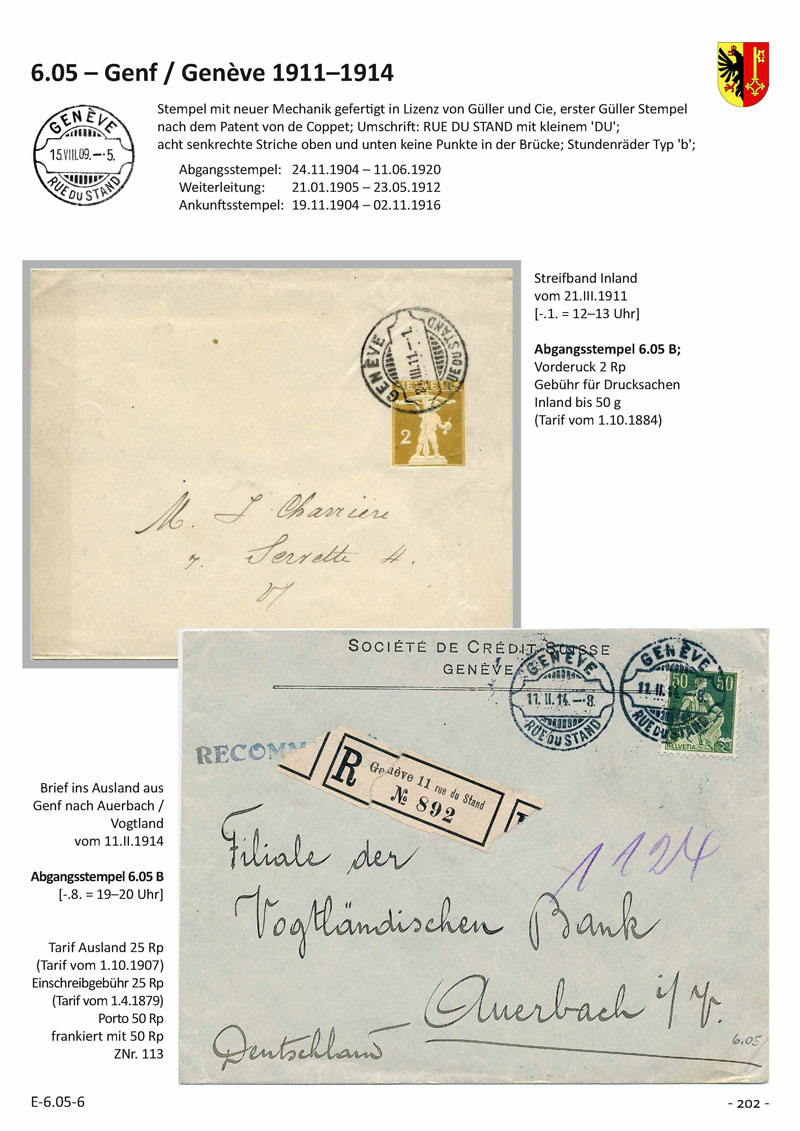 6.05 – Genf / Genève 1911–1914
GENÈVE
15.VIII.09.–·5.
RUE DU STAND
Stempel mit neuer Mechanik gefertigt in Lizenz von Güller und Cie, erster Güller Stempel
nach dem Patent von de Coppet; Umschrift: RUE DU STAND mit kleinem 'DU';
acht senkrechte Striche oben und unten keine Punkte in der Brücke; Stundenräder Typ 'b';
Abgangsstempel: 24.11.1904 – 11.06.1920
Weiterleitung: 21.01.1905 – 23.05.1912
Ankunftsstempel: 19.11.1904 – 02.11.1916
Streifband Inland
vom 21.III.1911
[-.1. = 12–13 Uhr]
Abgangsstempel 6.05 B;
Vorderuck 2 Rp
Gebühr für Drucksachen
Inland bis 50 g
(Tarif vom 1.10.1884)
GENÈVE
III.11.–·1.
RUE DU STAND
HELVETIA
2
M. J Charrière
Servette 4.
SOCIÉTÉ DE CRÉDIT SUISSE
GENÈVE
GENÈVE
11.II.14.–·8.
RUE DU STAND
GENÈVE
11.II.14. 8.
RUE DU STAND
50 50
HELVETIA
RECOMM
R
Genève 11 rue du Stand
№ 892
1124
Filiale der
Vogtländischen Bank
Auerbach i/V.
Deutschland
6.05
Brief ins Ausland aus
Genf nach Auerbach /
Vogtland
vom 11.II.1914
Abgangsstempel 6.05 B
[-.8. = 19–20 Uhr]
Tarif Ausland 25 Rp
(Tarif vom 1.10.1907)
Einschreibgebühr 25 Rp
(Tarif vom 1.4.1879)
Porto 50 Rp
frankiert mit 50 Rp
ZNr. 113
E-6.05-6
- 202 -